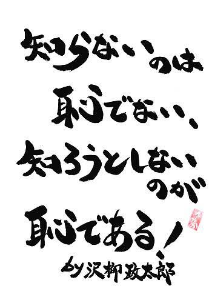 知らないのは
恥でない、
知ろうとしない
のが
恥である!
by 沢柳政太郎